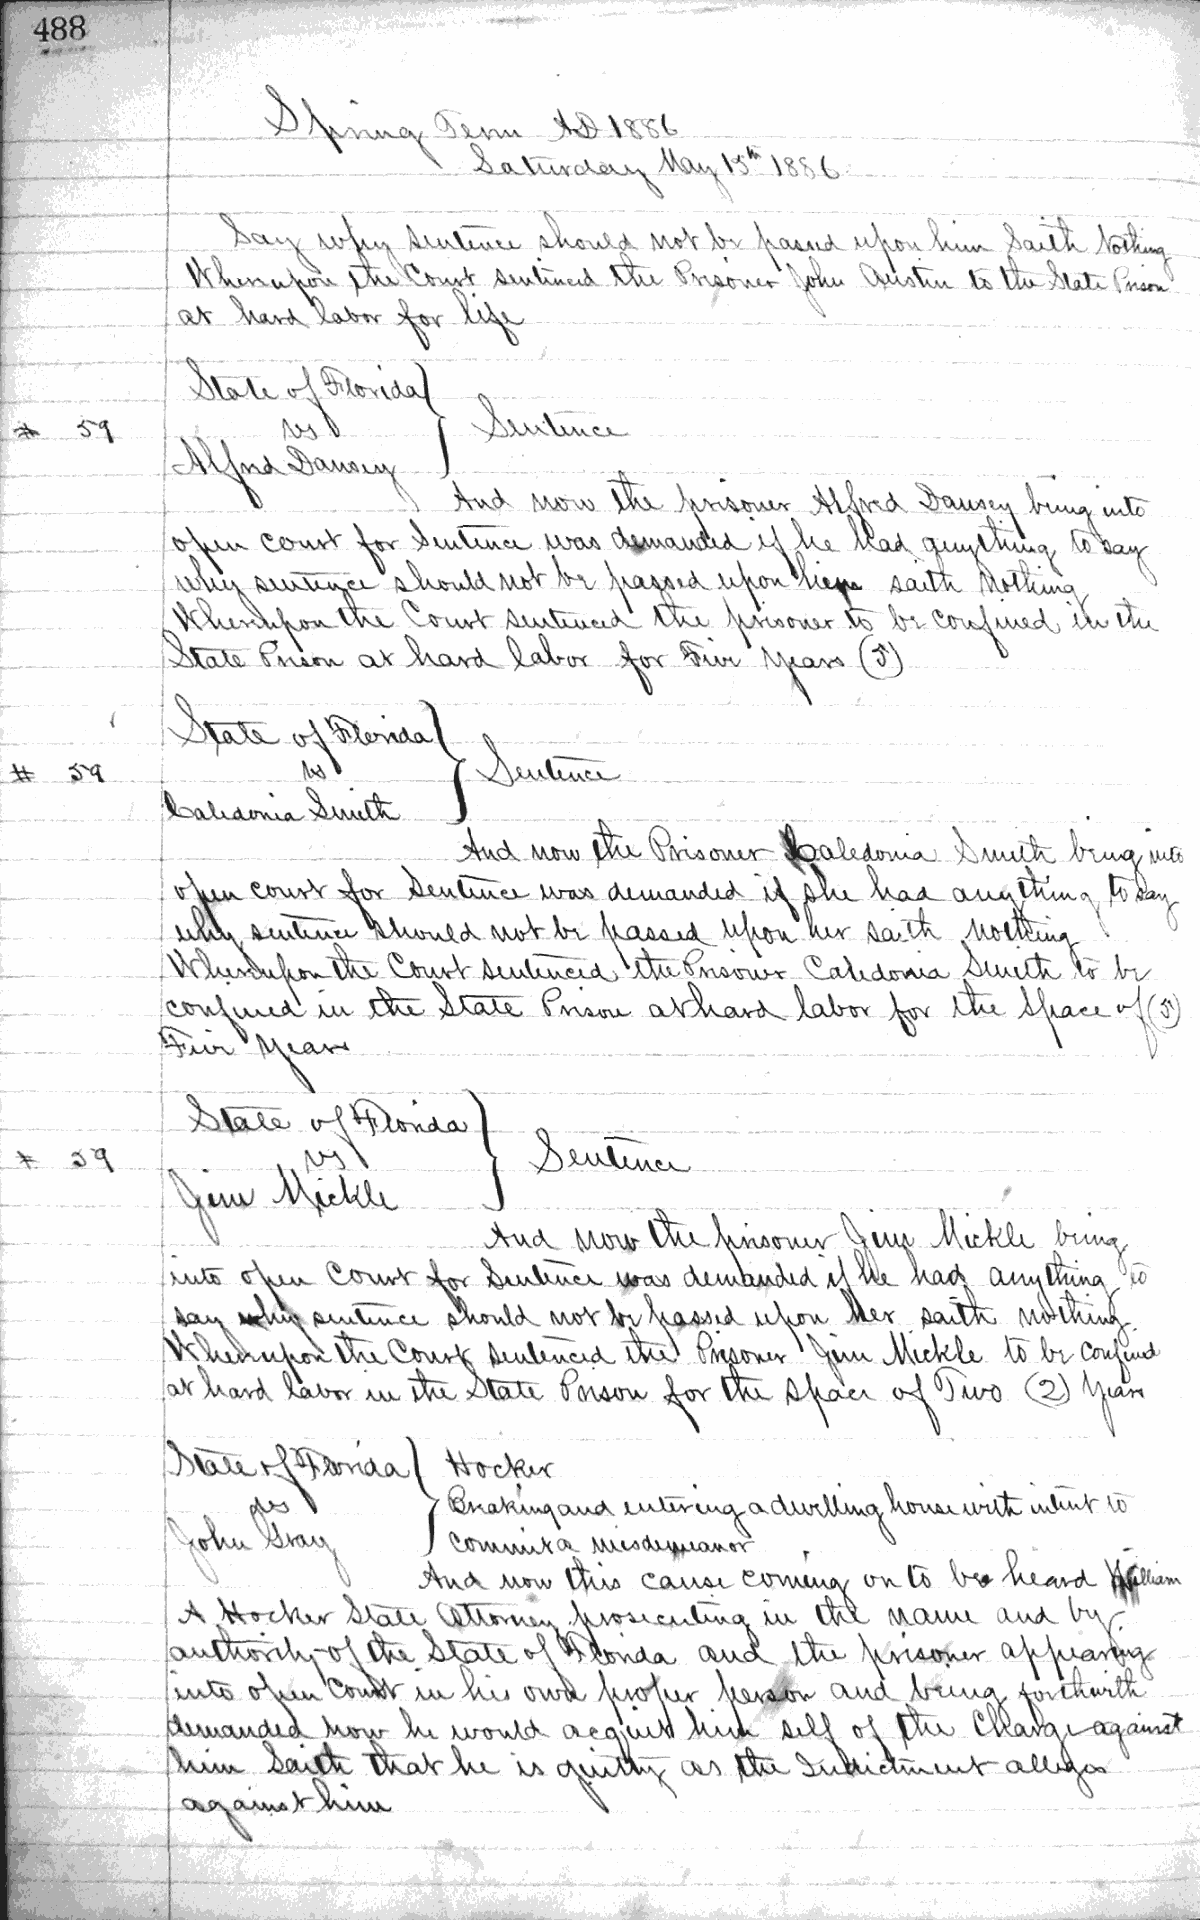 488
Spring Term AD 1886
Saturday May 15th 1886
Say why sentence should not be passed upon him Saith Nothing
Whereupon the Court sentenced the Prisoner John Austin to the State Prison
at hard labor for life
State of Florida
# 59 vs } Sentence
Alfred Dausey
And now the prisoner Alfred Dausey being into
open court for Sentence was demanded if he had anything to say
why sentence should not be passed upon him saith Nothing
Whereupon the Court sentenced the prisoner to be confined in the
State Prison at hard labor for Five Years (5)
State of Florida
# 59 vs } Sentence
Caledonia Smith
And now the Prisoner Caledonia Smith being into
open court for Sentence was demanded if she had anything to say
why sentence should not be passed upon her saith nothing
Whereupon the Court sentenced the Prisoner Caledonia Smith to be
confined in the State Prison at hard labor for the Space of (5)
Five Years
State of Florida
# 59 vs } Sentence
Jim Mickle
And now the prisoner Jim Mickle being
into open Court for Sentence was demanded if he had anything to
say why sentence should not be passed upon her saith nothing.
Whereupon the Court sentenced the Prisoner Jim Mickle to be confined
at hard labor in the State Prison for the space of Two (2) Years
State of Florida } Hocker
vs Breaking and entering a dwelling house with intent to
John Gray commit a misdemeanor
And now this cause coming on to be heard William
A Hocker State Attorney prosecuting in the name and by
authority of the State of Florida and the prisoner appearing
into open Court in his own proper person and being forthwith
demanded how he would acquit him self of the Charge against
him Saith that he is guilty as the Indictment alleges
against him